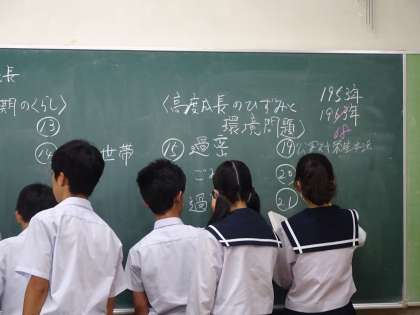 長
期のくらし〉
⑬
⑭
世帯
〈高度成長のひずみと
環境問題〉
⑮ 過密
ご
過
1953年
1963年
68
⑲公害対策基本法
⑳
㉑